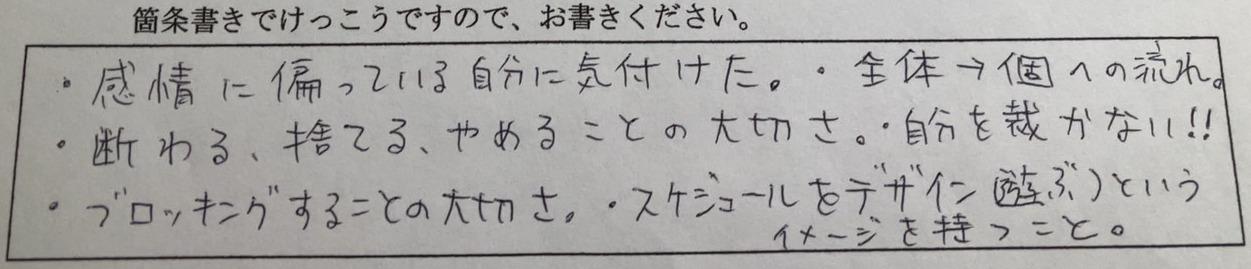 箇条書きでけっこうですので、お書きください。
・感情に偏っている自分に気付けた。・全体→個への流れ。
・断わる、捨てる、やめることの大切さ。・自分を裁かない!!
・ブロッキングすることの大切さ。・スケジュールをデザイン(遊ぶ)という
イメージを持つこと。